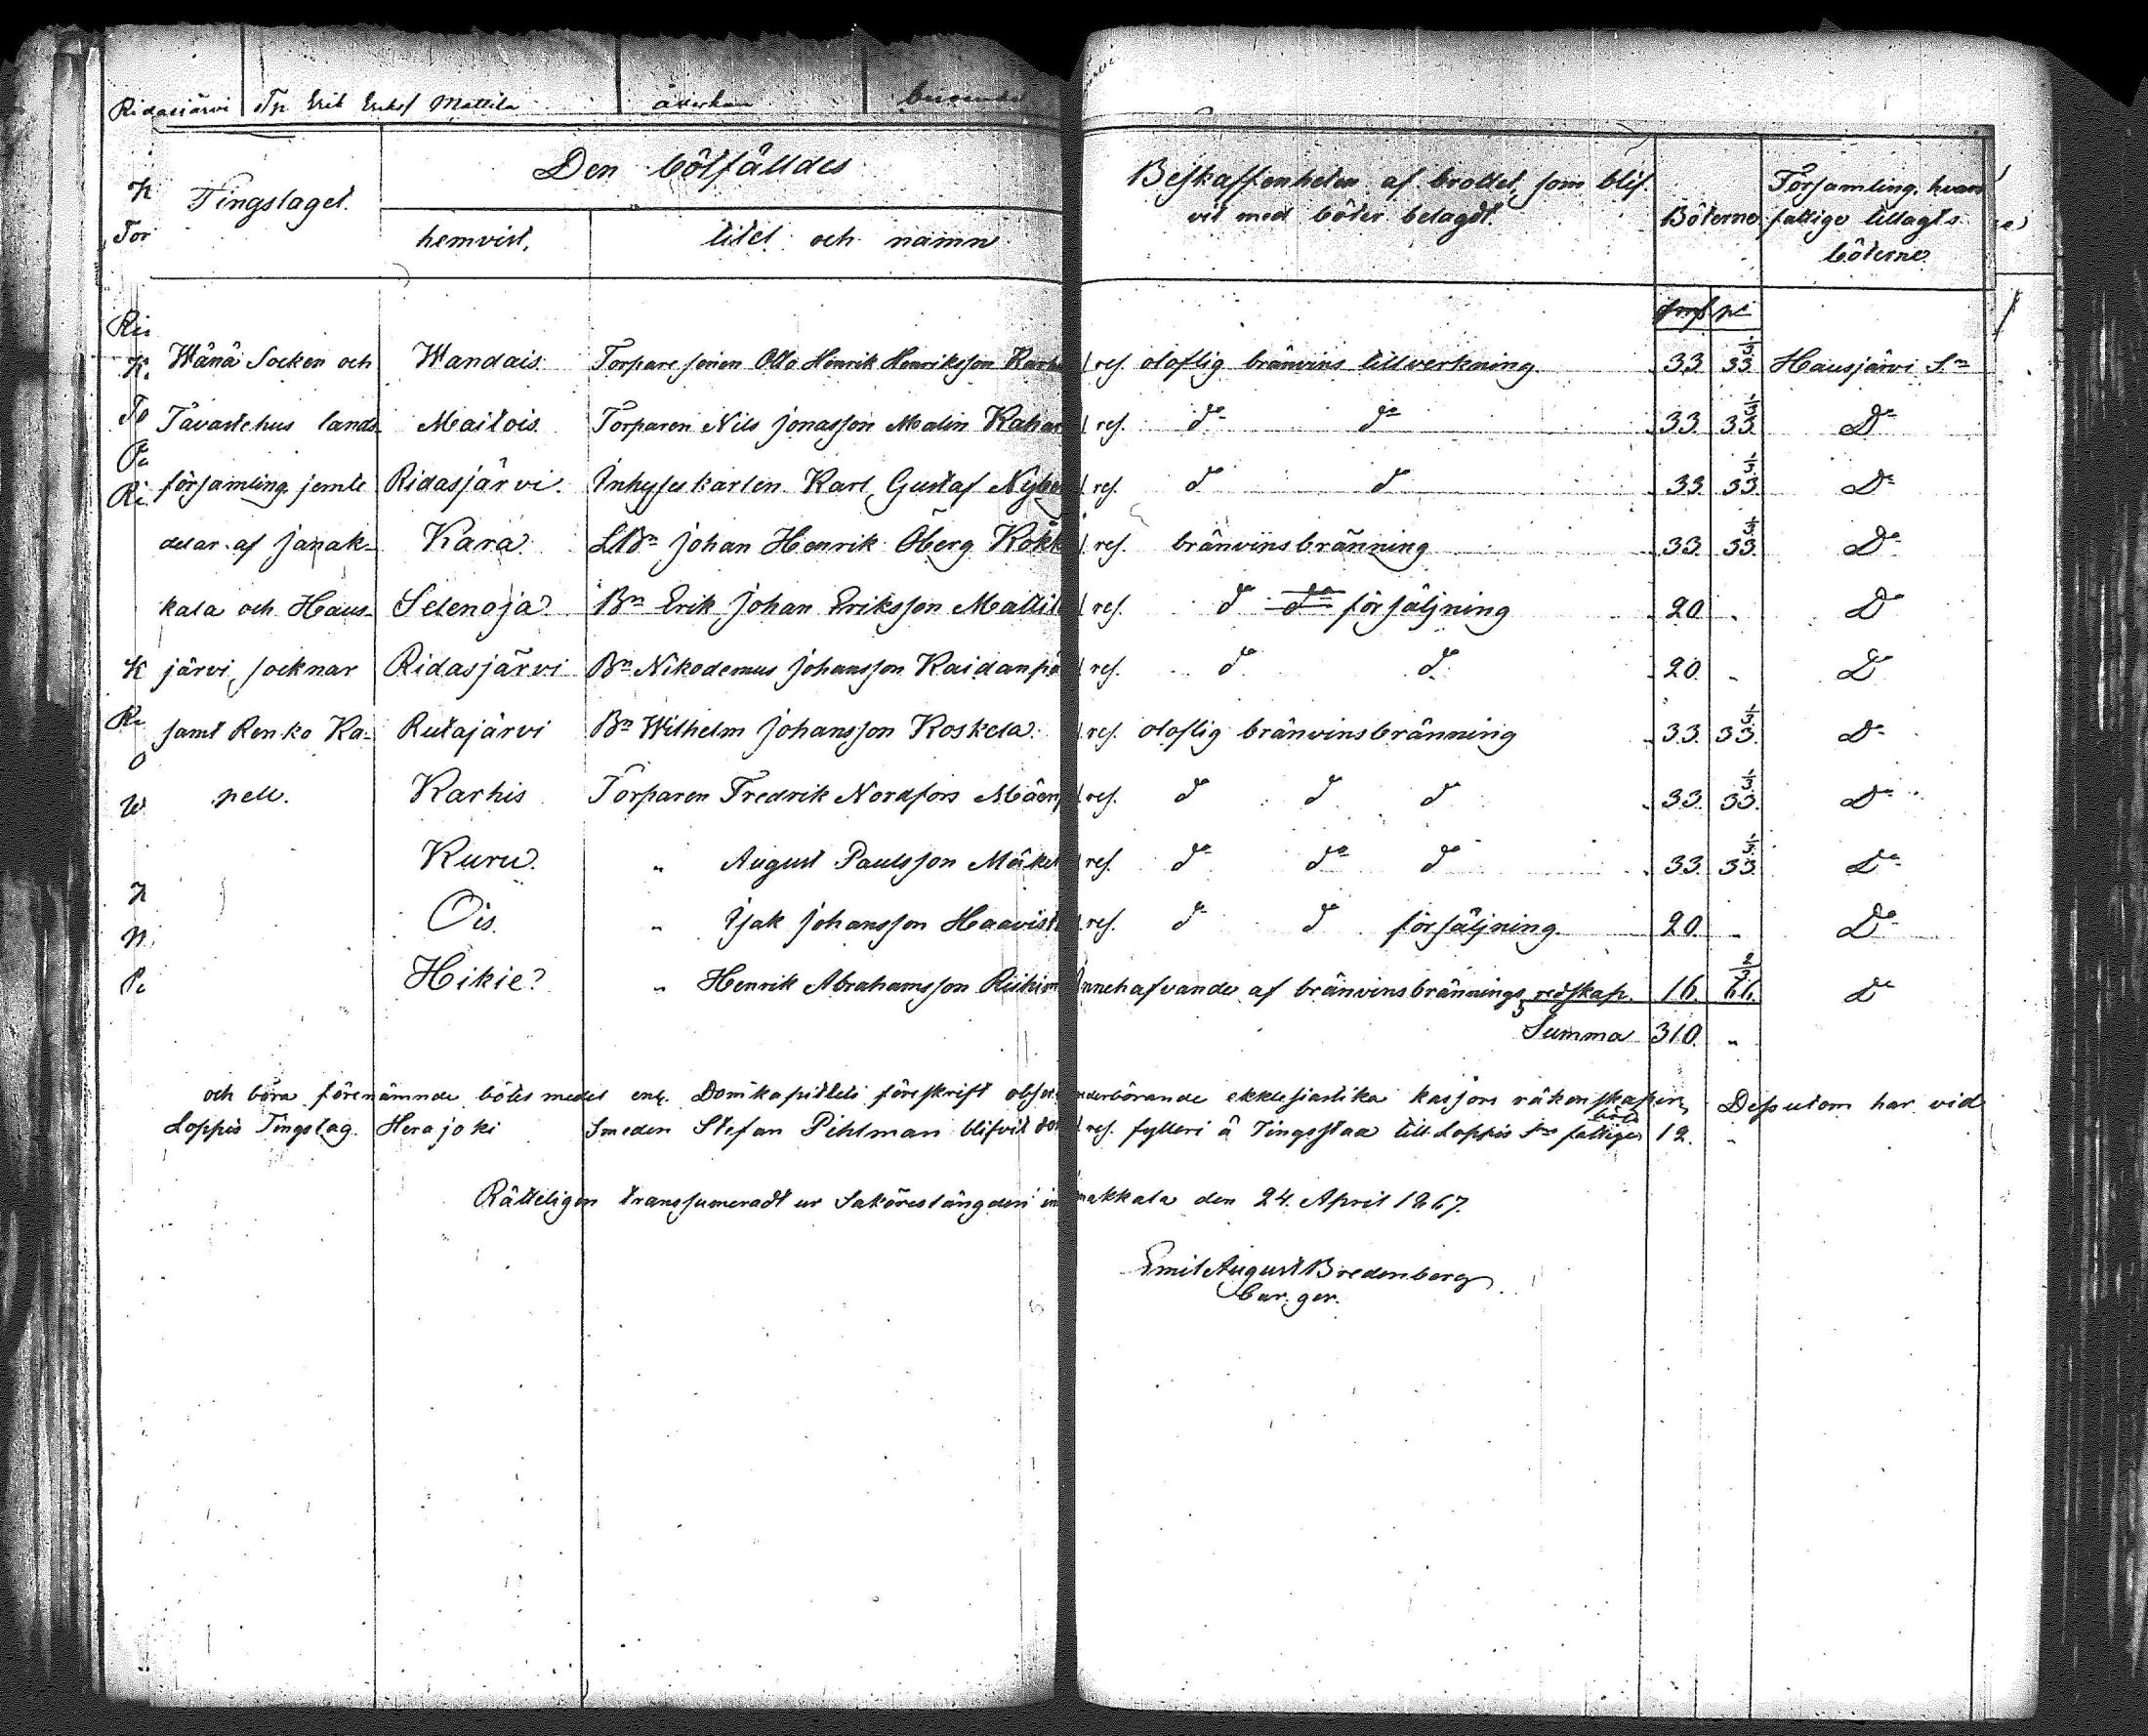 Ridasjärvi Tp. Erik Eriksf Mattila åverkan
Den bötfälldes
Beskaffenheten af brottet, som blif-
Församling, hvars
Tingslaget.
vit med böter belagdt.
Böterne
fattige tillagts
hemvist,
titel och namn
böterne
Wånå Socken och Wandais. Torpare sonen Otto Henrik Henriksson Karh res. oloflig bränvins tillverkning 33. 33 1/3. Hausjärvi Sn
Tavastehus lands- Maitois. Torparen Nils Jonasson Malin Kahar res. do do 33. 33 1/3. Do
församling jemte Ridasjärvi. Inhyses karlen Karl Gustaf Nyber res. do do 33. 33 1/3. Do
delar af Janak- Kara Johan Henrik Öberg Kokk res. bränvinsbränning 33. 33 1/3. Do
kala och Haus- Selenoja? Bn Erik Johan Eriksson Mattil res. do försäljning 20 Do
järvi socknar Ridasjärvi Bn Nikodemus Johansson Kaidanpä res. do do 20. Do
samt Renko Ka- Rutajärvi Bn Wilhelm Johansson Koskela res. oloflig bränvinsbränning 33. 33 1/3. Do
pell. Karhis Torparen Fredrik Nordfors Mäenp res. do do do 33. 33 1/3. Do
Kuru. " August Paulsson Mäkel res. do do do 33. 33 1/3. Do
Ois. " Isak Johansson Haavist res. do do försäljning. 20. " Do
Hikie? " Henrik Abrahamsson Riihim Innehafvande af bränvinsbrännings redskap. 16. 66 2/3. Do
Summa 310. "
och böra förenämnde bötesmedel enl. Domkapitlets föreskrift ekklesiastika kassors räkenskaper, Dessutom har vid
Loppis Tingslag. Herajoki Smeden Stefan Pihlman blifvit res. fylleri å Tingsstaa till Loppis Sns fattige böta 12. "
Rätteligen transsumeradt ur Saköreslängden i nakkala den 24. April 1867.
Emil August Bredenberg